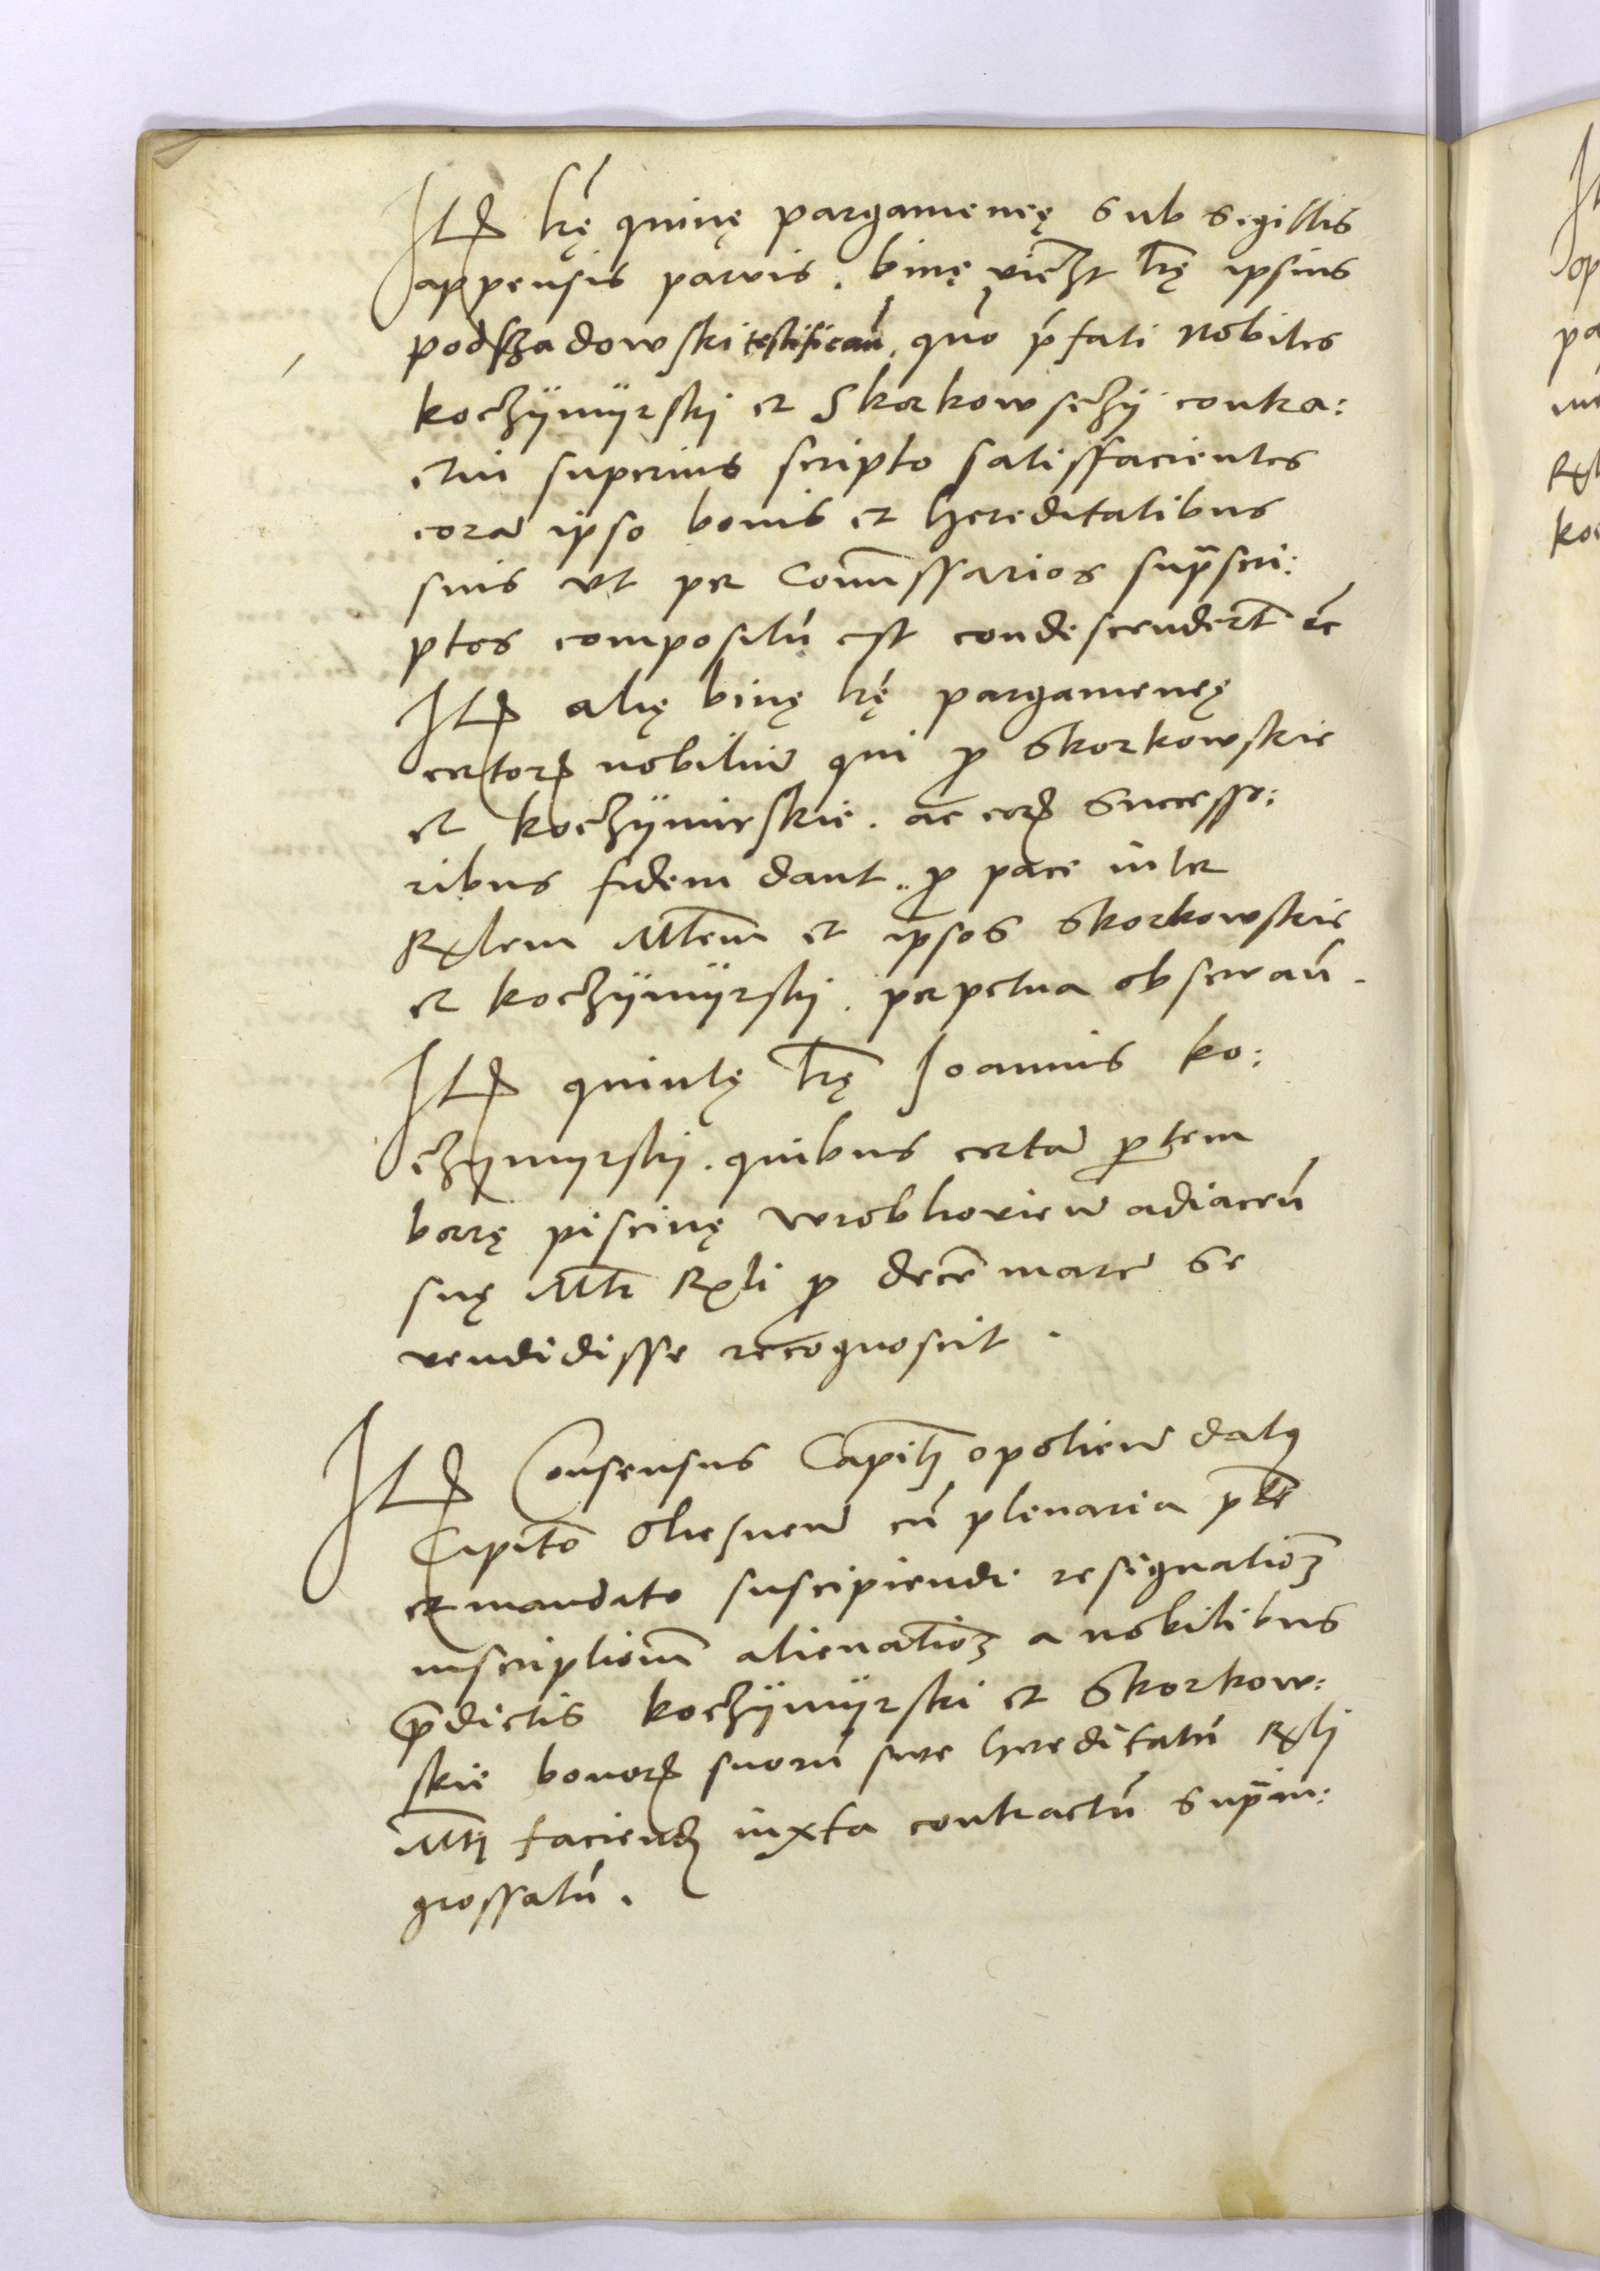 Itē lrę quinę pargameneę sub sigillis
appensis parvis. binę vicht lrę ipsius
podszadowski testifican̄. quō p̄fati nobiles
kochzÿmÿrskj et Skorkowschÿ contra:
ctui superius scripto satisffacientes
corā ipso bonis et hereditatibus
suis vt per Com̄issarios supscri:
ptos compositū est condescendert̄ ēc
Itē alię binę lrę pargameneę
certorꝝ nobiliū qui ꝓ Skorkowskie
et kochzÿmirskie. ac eorꝝ Successo:
ribus fidem dant. ꝓ pace inter
Rxlem Mtem̄ et ipsos Skorkowskie
et kochzÿmÿrskj. perpetua observan̄.
Itē quintę lrę Joannis ko:
chzÿmyrskj. quibus certā ꝑtem
borrę piscinę wrobloviēn adiacen̄
suę Mti Rxli ꝓ decē marcę se
vendidisse recognoscit.
Itē Consensus Capitj opoliēn datꝫ
Capitō Oliesnēn cū plenaria ptē
et mandato suscipiendi resignationꝫ
inscriptionū alienationꝫ a nobilibus
p̄dictis kochzÿmÿrski et Skorkow:
skie bonorꝝ suorū sive hereditatū Rxlj
Mtj faciendꝫ iuxta contractū supin:
grossatū.